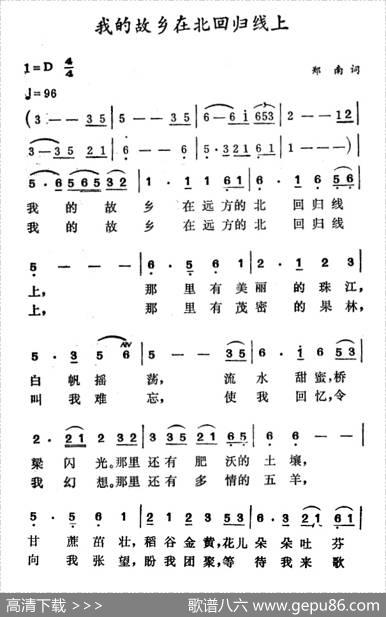 我的故乡在北回归线上
1=D 4/4
郑 南 词
♩=96
(3 — 35 | 5 — — 35 | 6 — 6 i 653 | 2 — — 12 |
3 — 35 21 | 6 — — 6 | 5 · 321 61 | 5 — — —) |
5 · 6565 32 | 1 · 1 1 61 | 6 · 1 6 56 |
我 的 故 乡 在远方的北 回归线
我 的 故 乡 在远方的北 回归线
5 — — — | 6 · 5 6 12 | 2 · 1 2 3 |
上, 那 里有美丽 的 珠 江,
上, 那 里有茂密 的 果 林,
5 · 3 5 6 | 5 — — 35 | 6 · i 6 53 |
白 帆摇 荡, 流 水 甜蜜,桥
叫 我难 忘, 使 我 回忆,令
2 · 21 2 32 | 3 35 21 65 | 6 6 — — |
梁 闪 光。那里 还有 肥 沃的 土 壤,
我 幻 想。那里 还有 多 情的 五 羊,
5 · 5 6 1 | 2 12 3 23 | 6 · 3 21 61 |
甘 蔗 茁 壮,稻谷 金黄,花儿 朵 朵吐 芬
向 我 张 望,盼我 团聚,等 待 我来 歌
高清下载 >>>
歌谱八六 www.gepu86.com